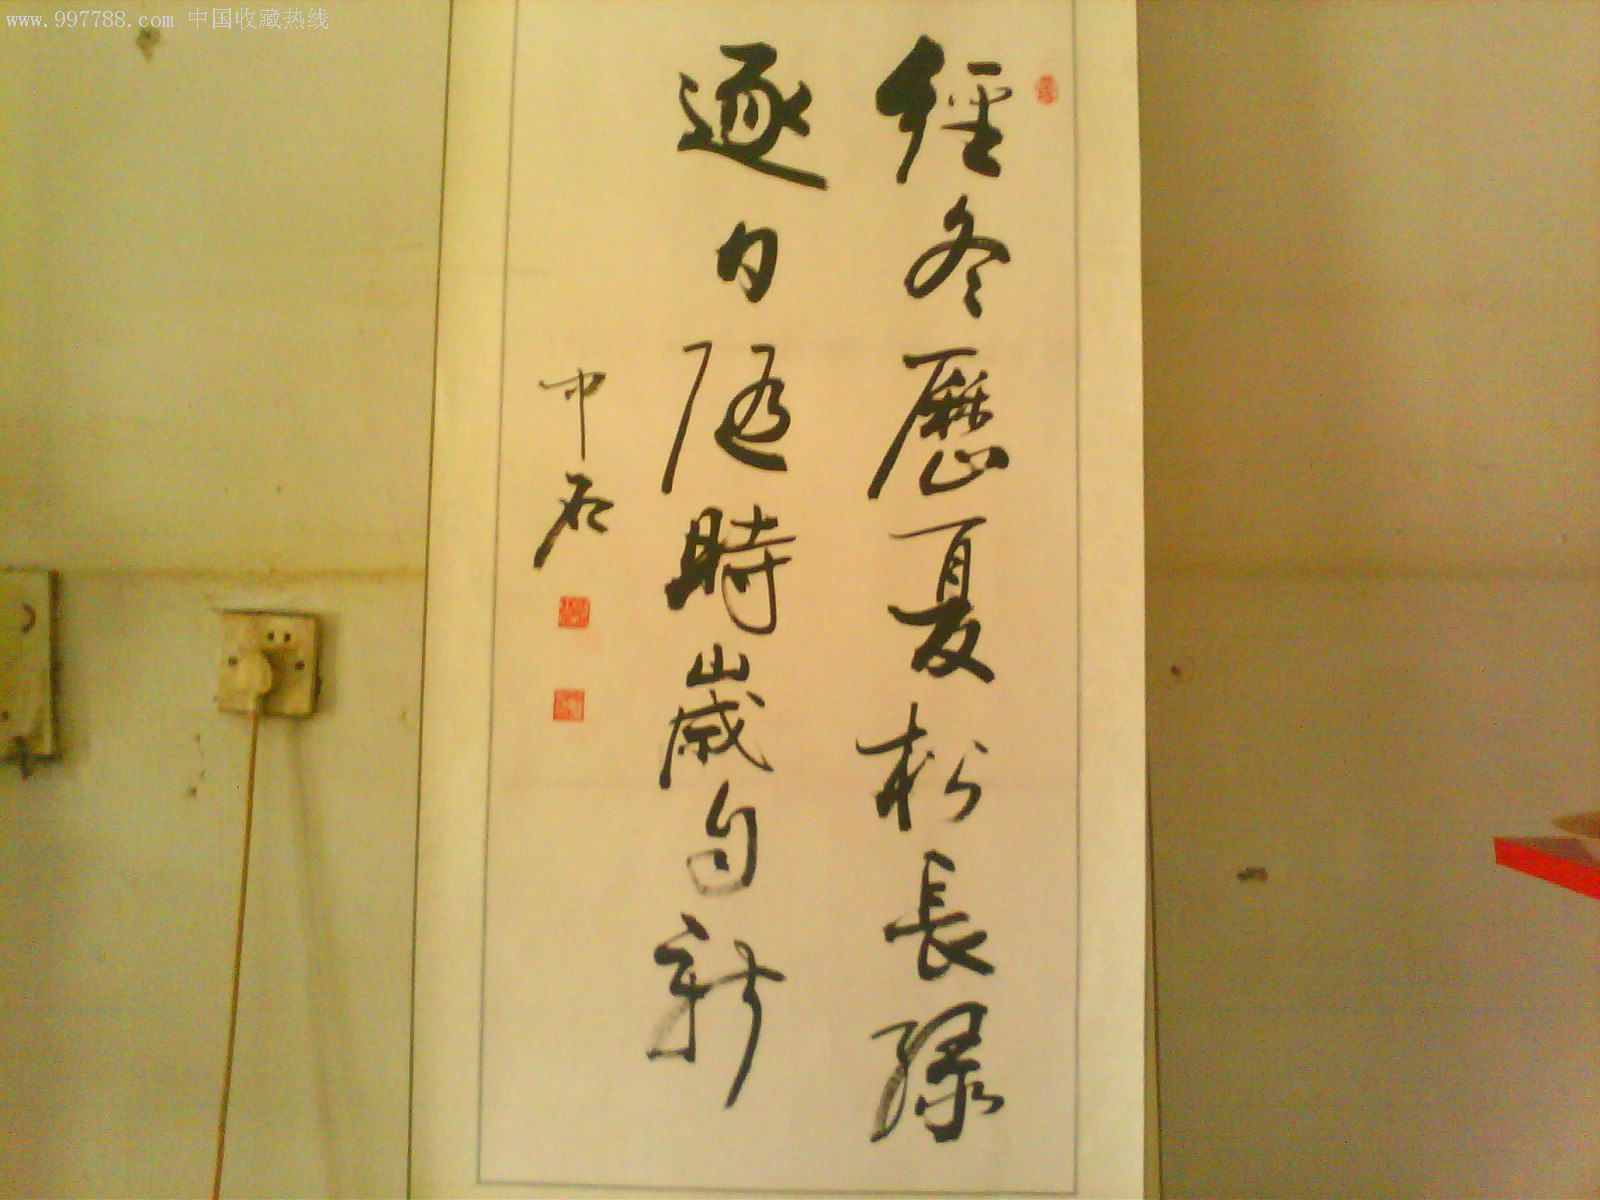 www.997788.com 中国收藏热线
經冬歷夏松長綠
逐日隨時歲自新
中石